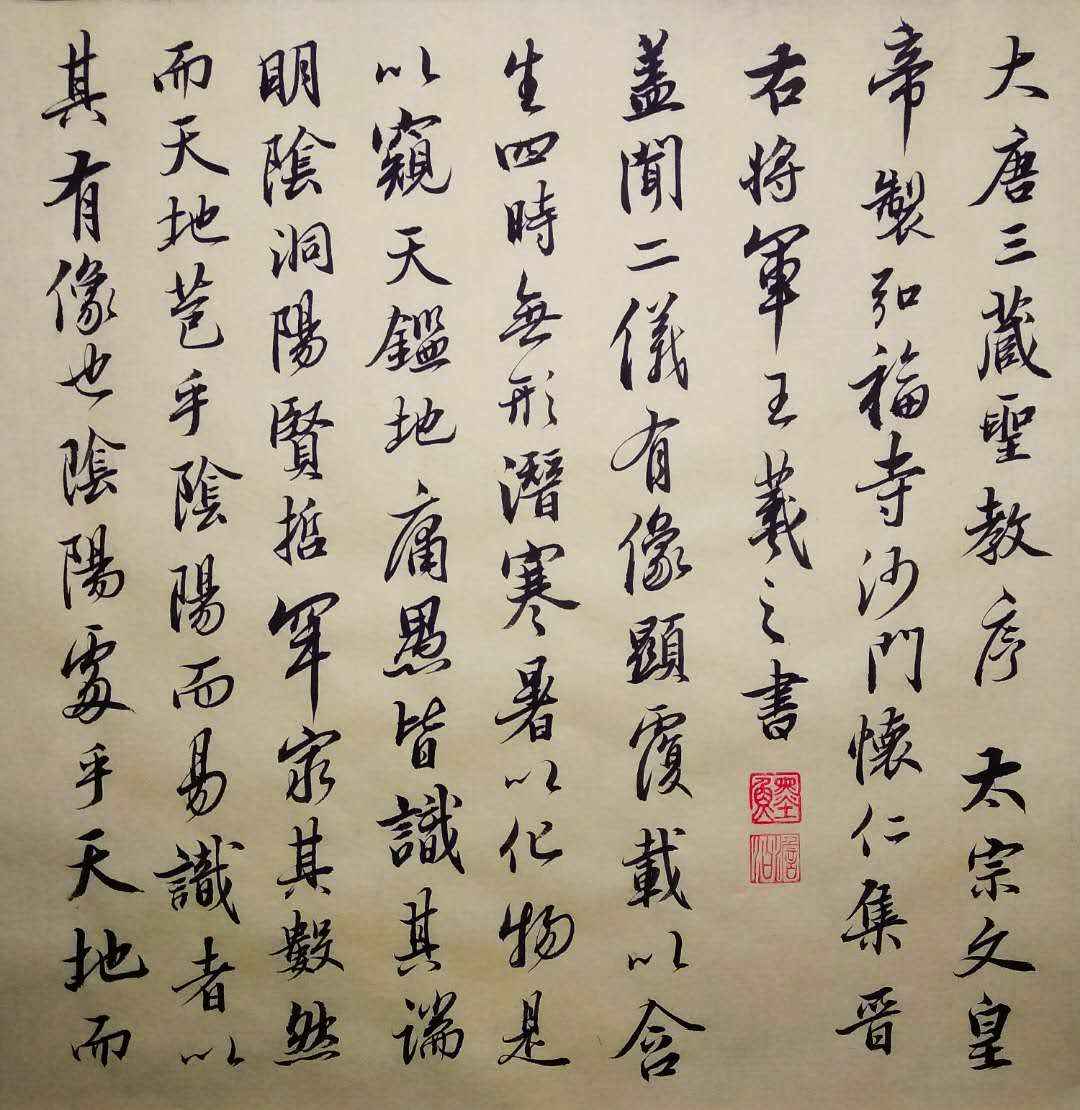 大唐三藏聖教序 太宗文皇
帝製弘福寺沙門懷仁集晉
右将軍王羲之書
盖聞二儀有像顯覆載以含
生四時無形潛寒暑以化物是
以窺天鑑地庸愚皆識其端
明陰洞陽賢哲罕窮其數然
而天地苞乎陰陽而易識者以
其有像也陰陽處乎天地而